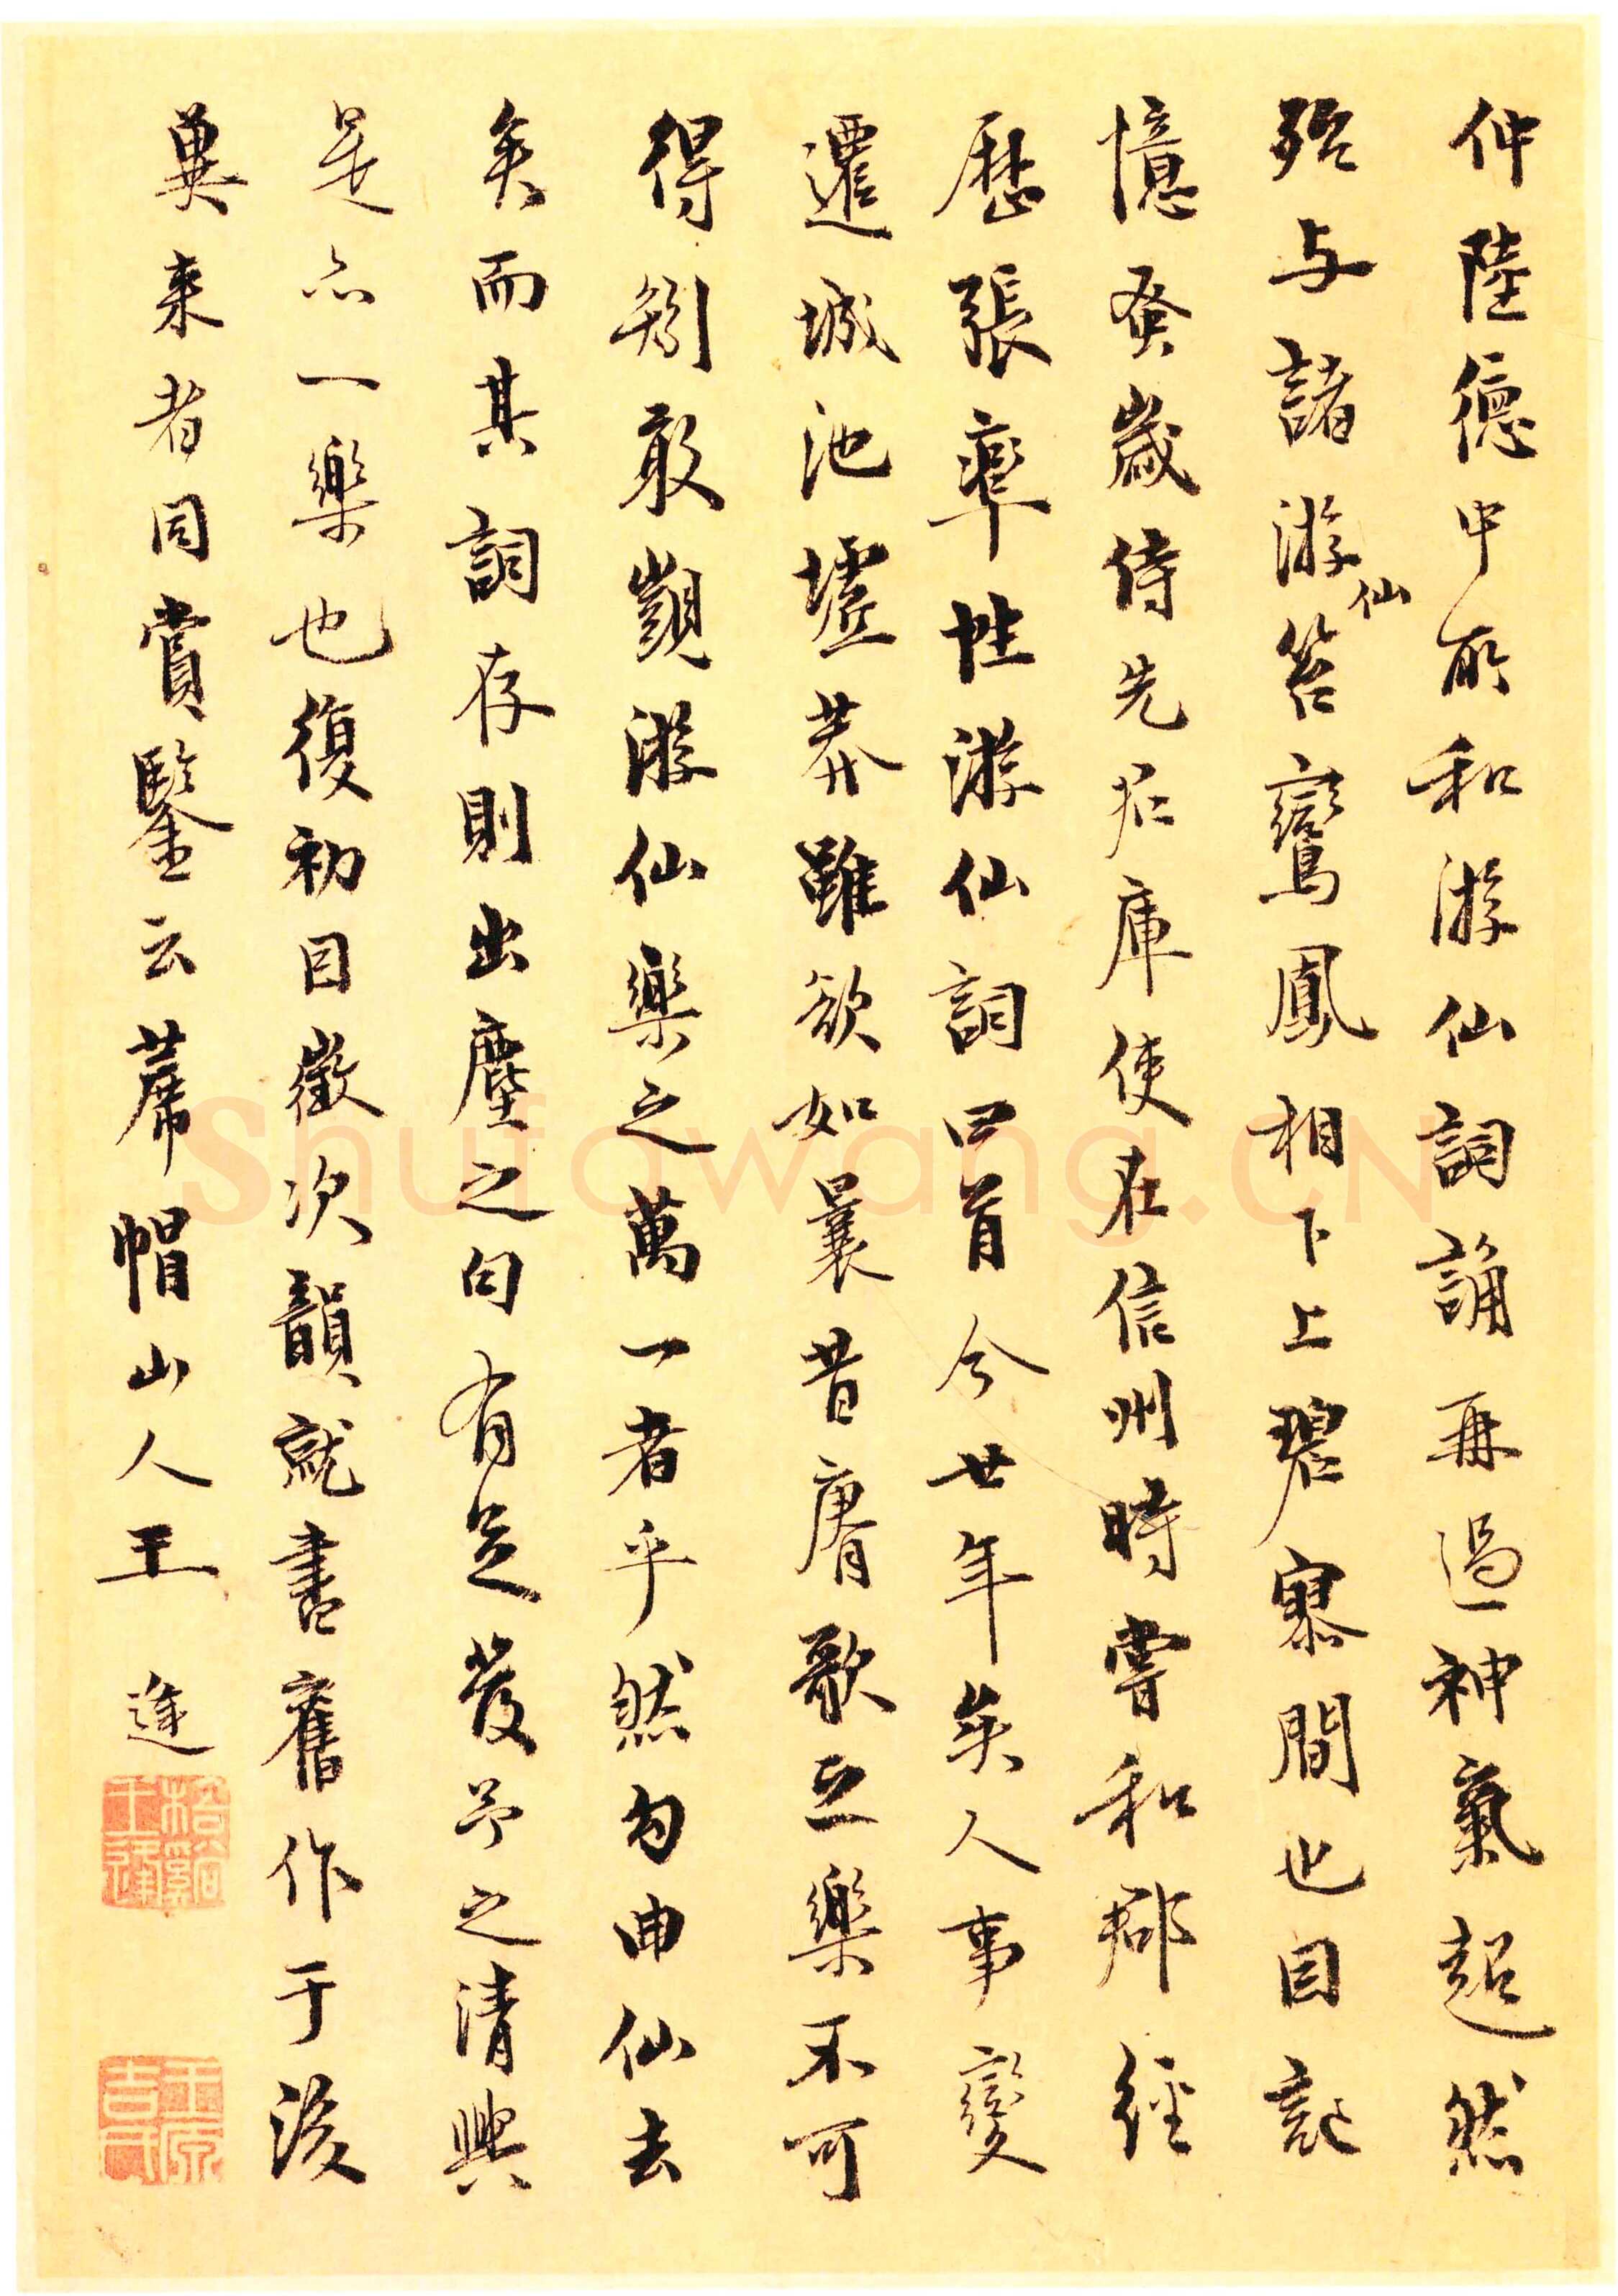 仲陸德中所和游仙詞誦再過神氣超然
殆与諸游仙笞鸞鳳相下上碧寥間也因記
憶蚤歲侍先君庫使在信州時嘗和郡經
歷張率性游仙詞回首今廿年矣人事變
遷城池墟莽雖欲如曩昔賡歌之樂不可
得矧敢覬游仙樂之萬一者乎然句曲仙去
矣而其詞存則出塵之句有足發予之清興
是亦一樂也復初因徵次韻就書舊作于後
冀来者同賞鑒云蓆帽山人王逢
梧谿王逢
王原吉氏
Shufawang.CN